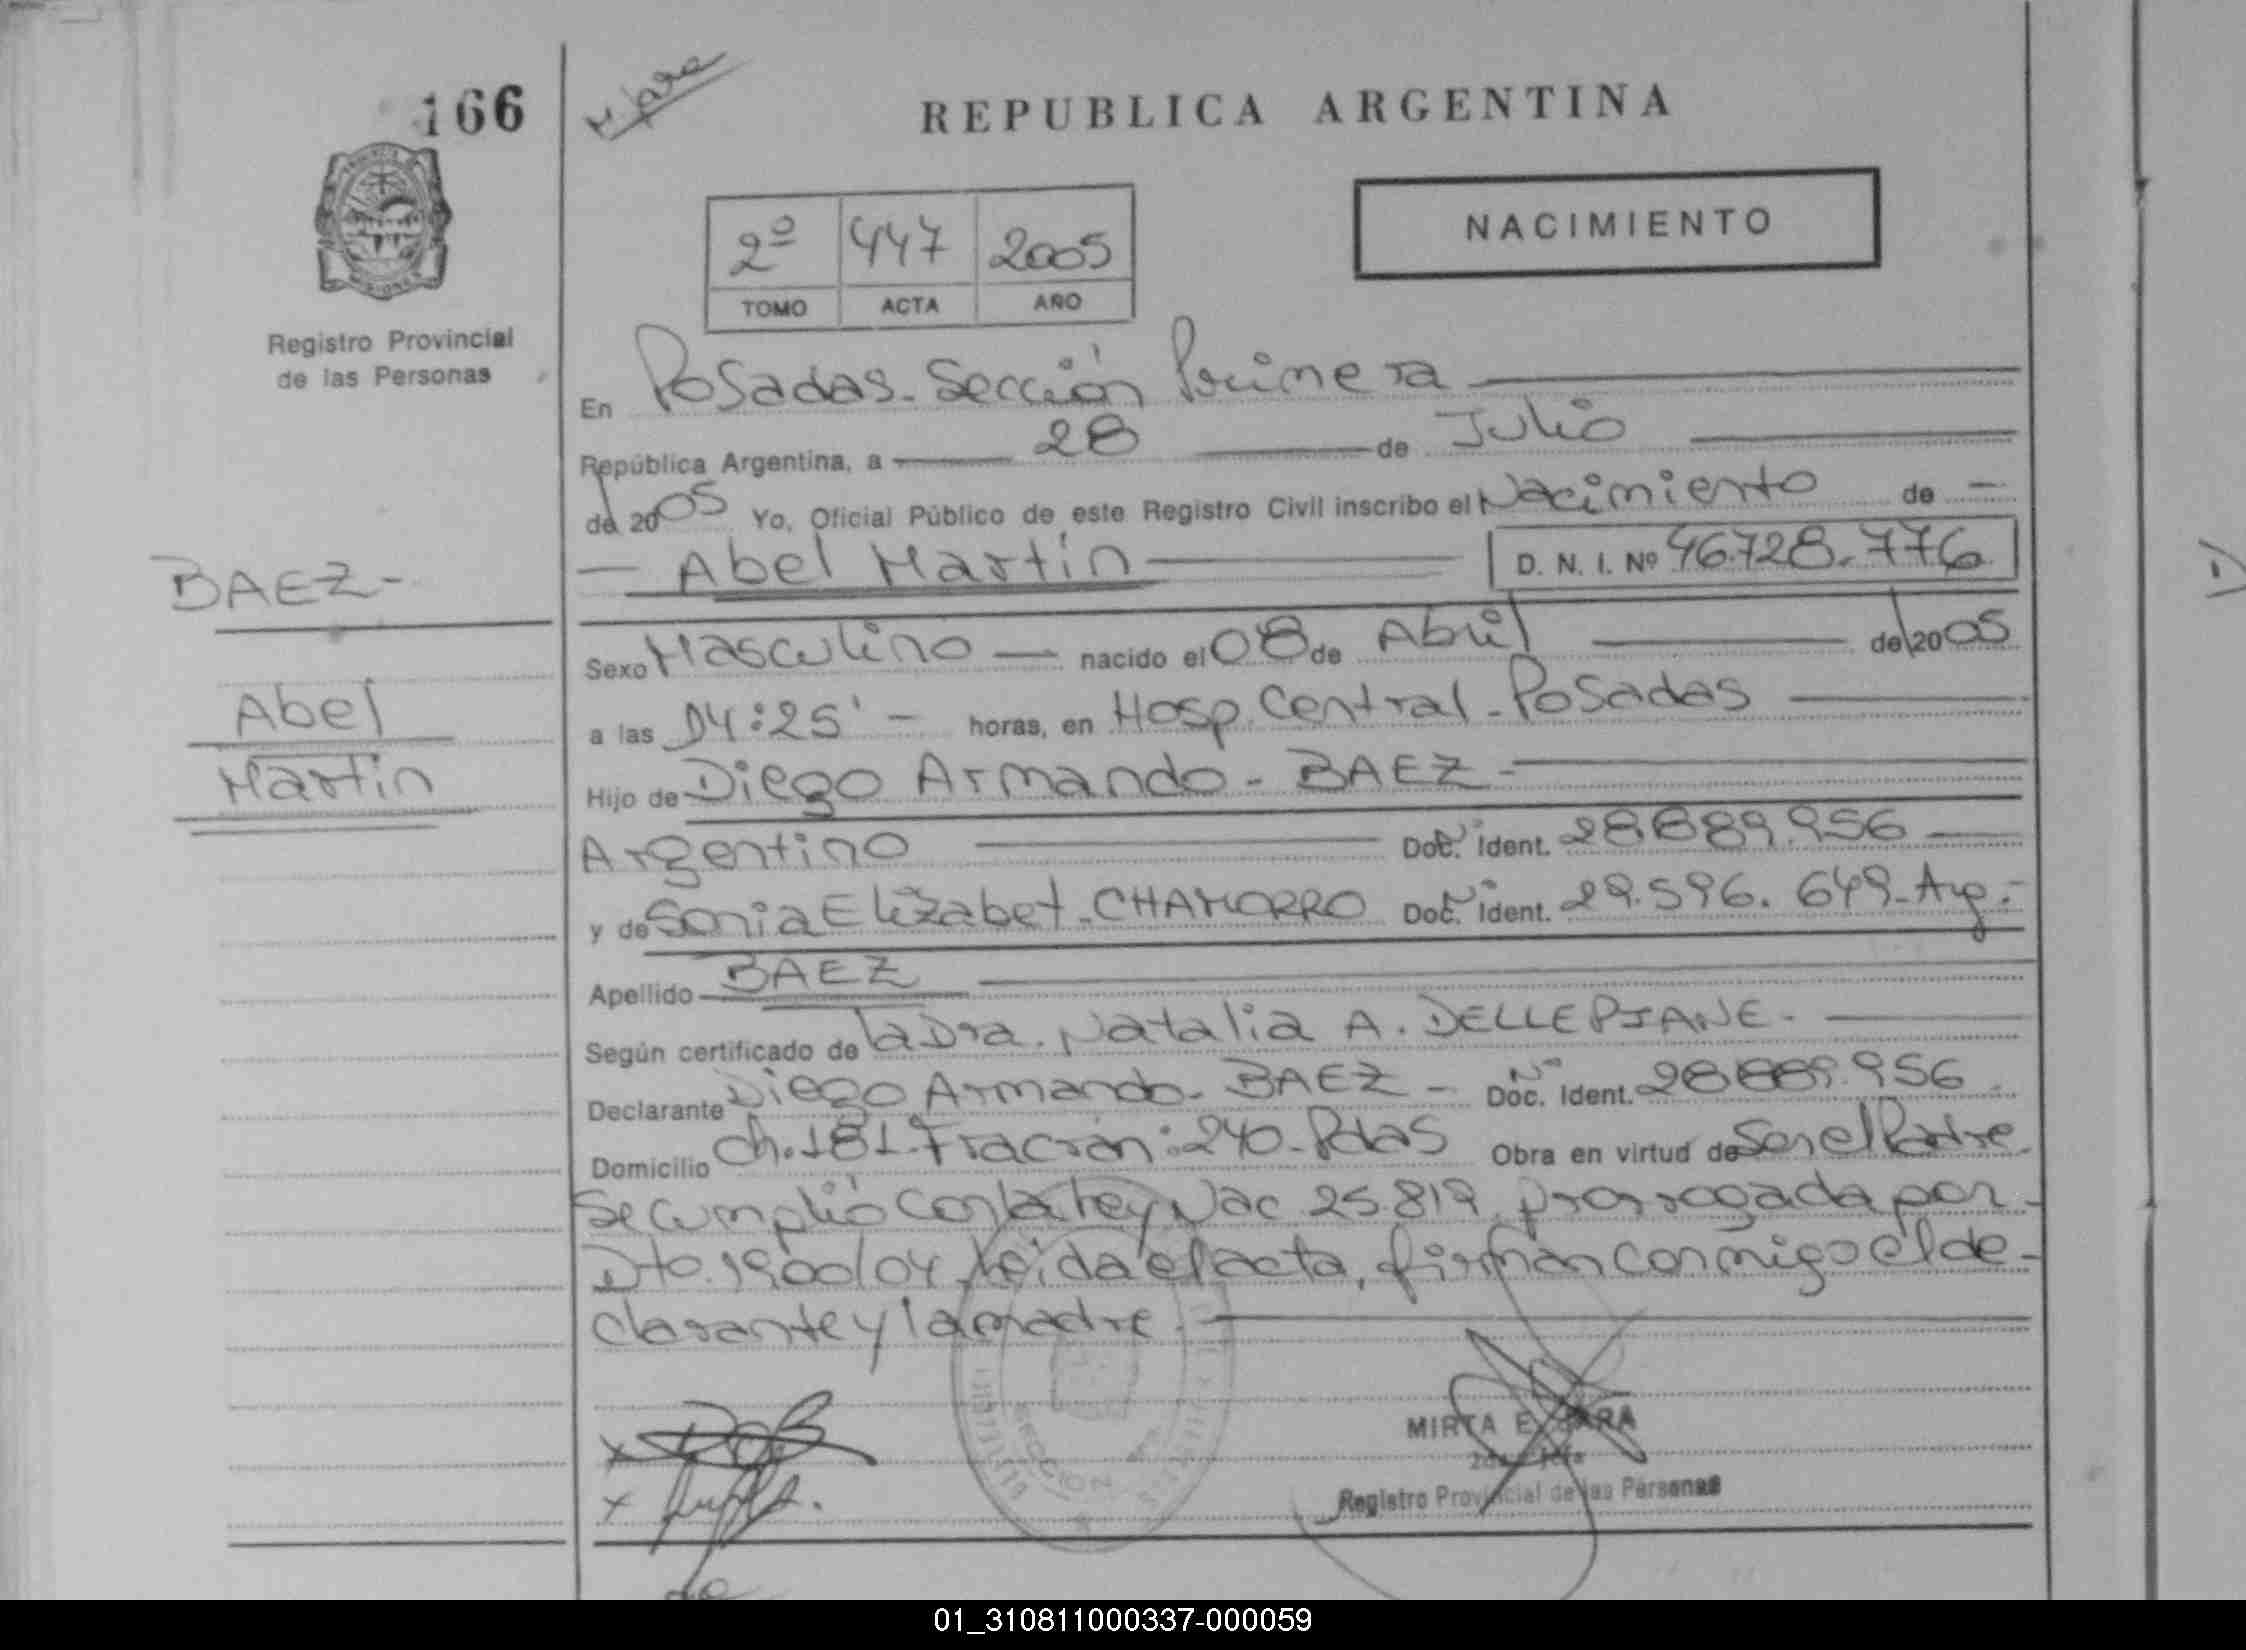 166
REPUBLICA ARGENTINA
NACIMIENTO
2º 447 2005
TOMO ACTA AÑO
Registro Provincial
de las Personas
En Posadas - Sección Primera
República Argentina, a 28 de Julio
de 2005 Yo, Oficial Público de este Registro Civil inscribo el Nacimiento de -
Abel Martín D. N. I. Nº 46.728.776
BAEZ -
Abel
Martín
Sexo Masculino nacido el 08 de Abril de 2005
a las 04:25' - horas, en Hosp. Central - Posadas
Hijo de Diego Armando - BAEZ -
Argentino Doc. Nº Ident. 28.889.956
y de Sonia Elizabet - CHAMORRO Doc. Nº Ident. 29.596.649 - Arg.-
Apellido BAEZ
Según certificado de la Dra. Natalia A. DELLEPIANE -
Declarante Diego Armando - BAEZ - Doc. Nº Ident. 28.889.956
Domicilio Ch. 181 - Fracción: 240 - Pdas Obra en virtud de Ser el Padre.
Se cumplió con la Ley Nac 25.819 prorrogada por
Dto. 1900/04, leida el acta, firman conmigo el de-
clarante y la madre.
SECCION
MIRTA E. JARA
2da. Jefa
Registro Provincial de las Personas
01_310811000337-000059